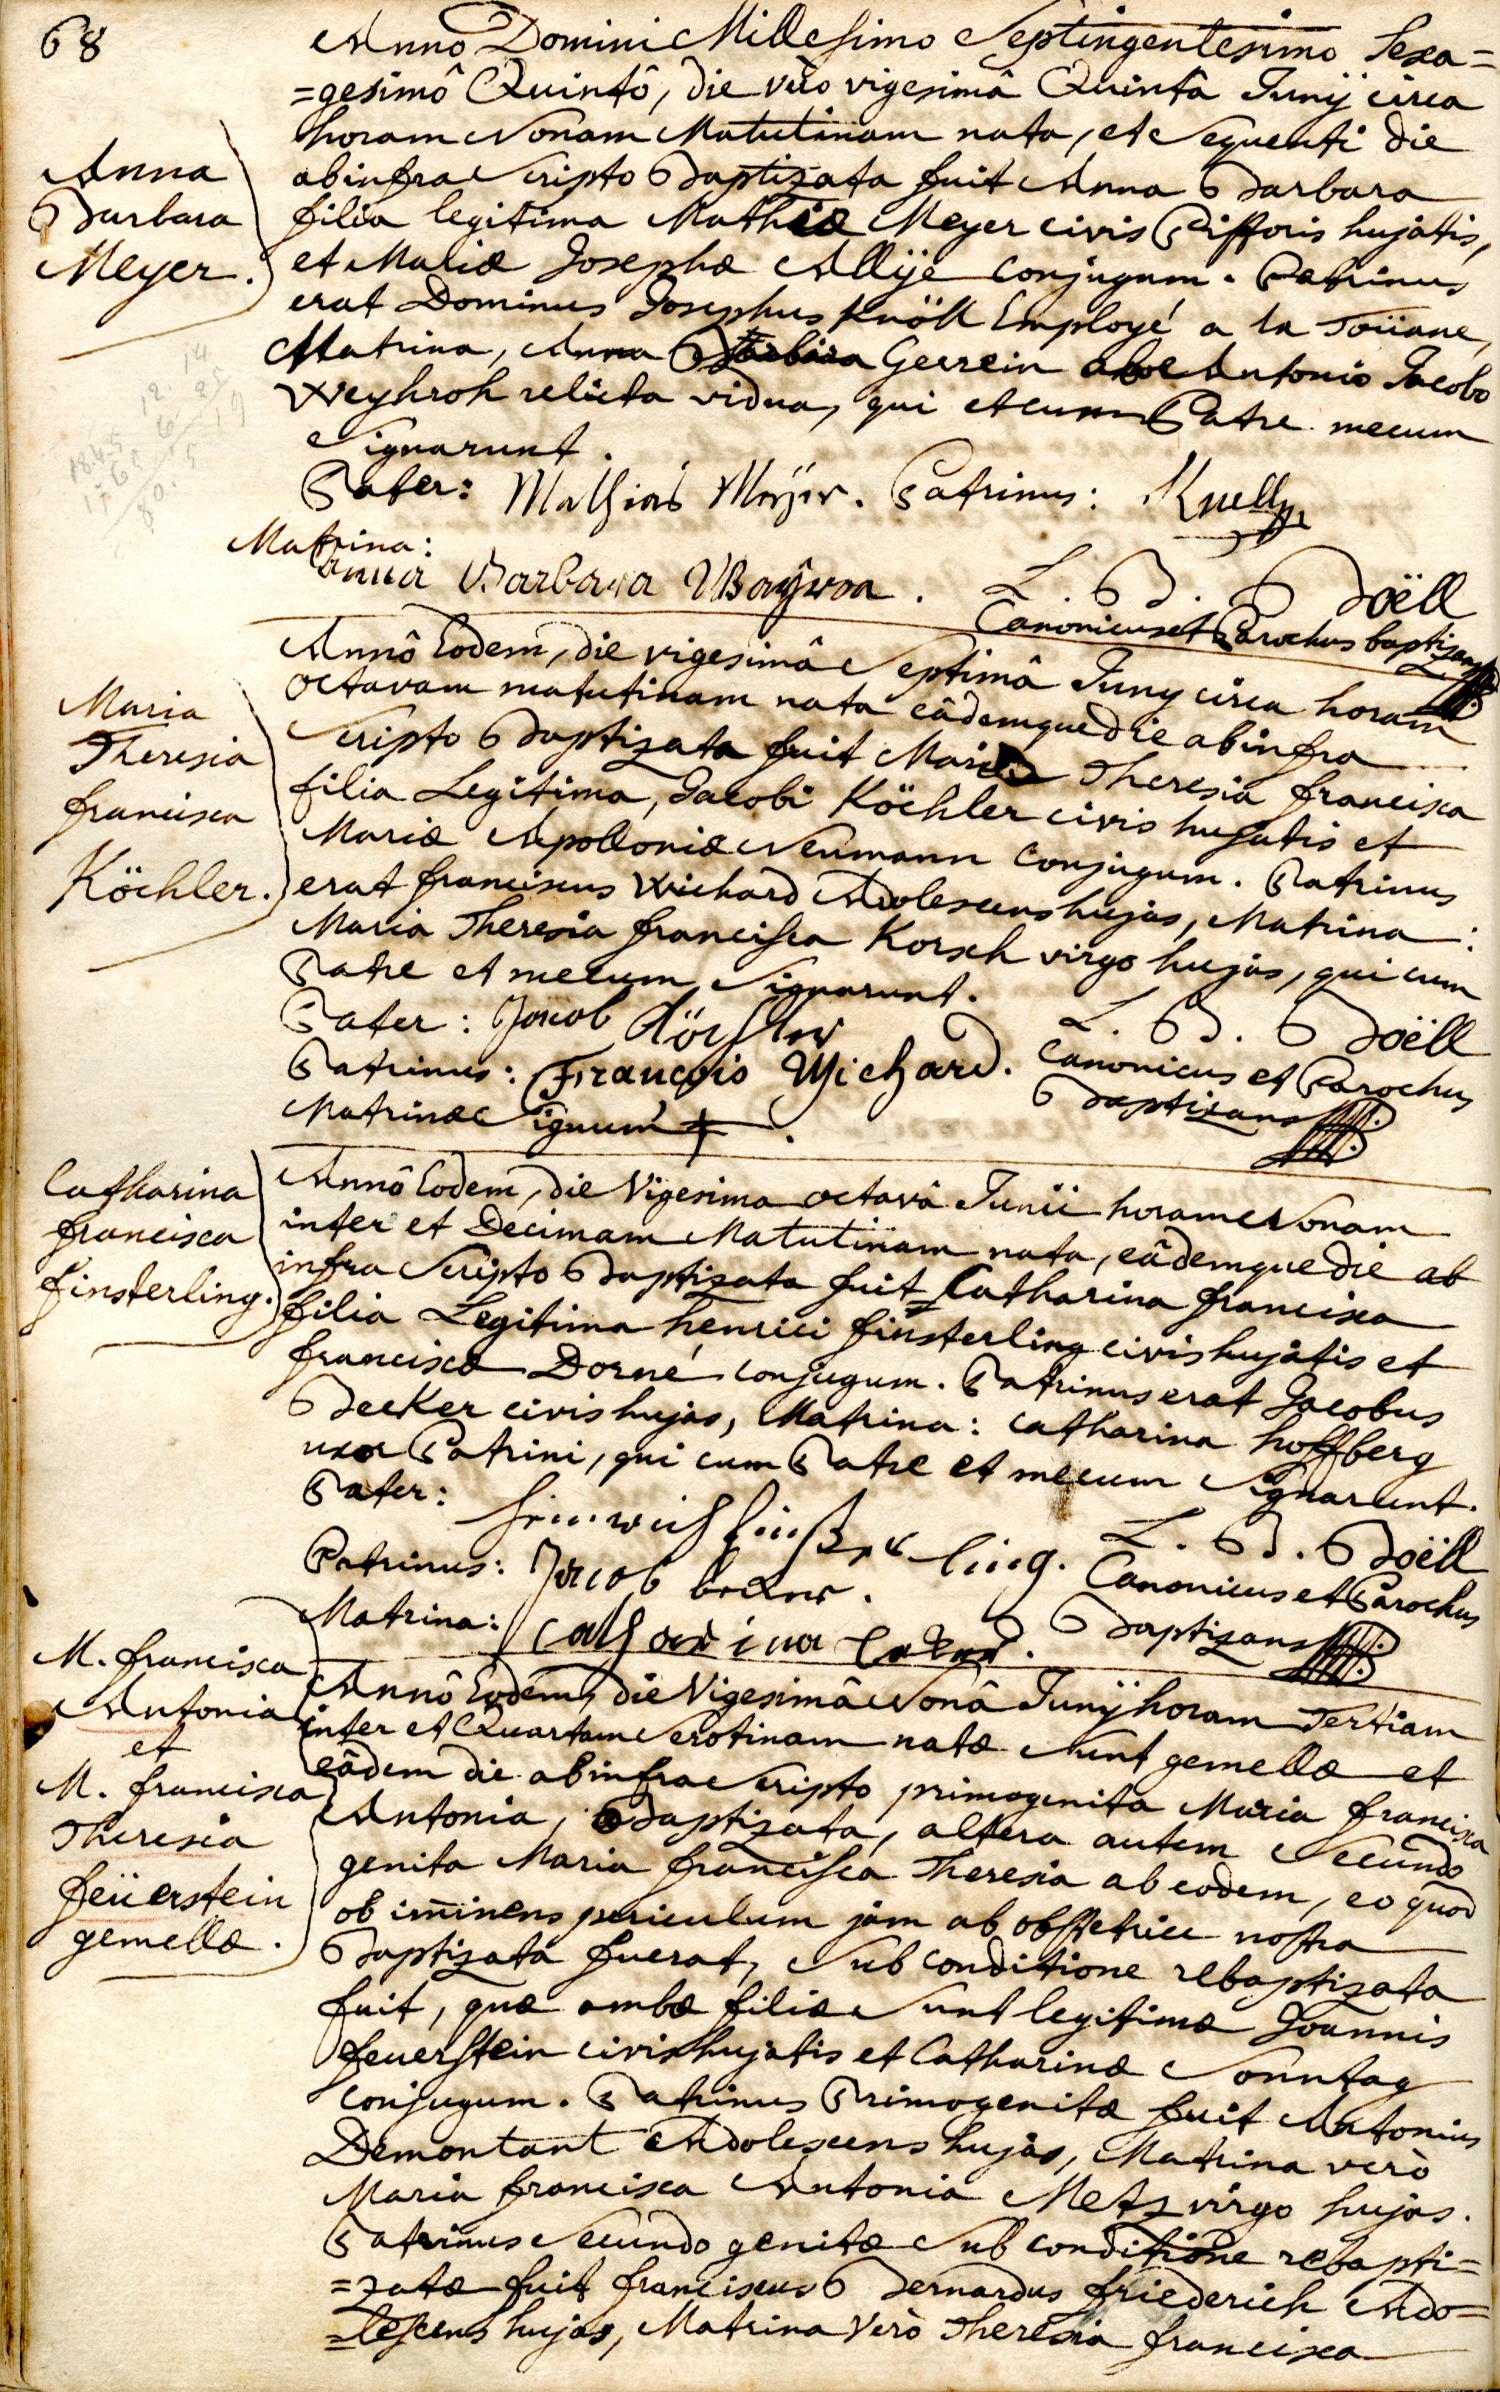 68
Anno Domini Millesimo Septingentesimo Sexa=
=gesimô Quintô, die vero vigesimâ Quintâ Junij circa
horam Nonam Matutinam nata, et Sequenti die
ab infra Scripto Baptizata fuit Anna Barbara
filia legitima Mathiæ Meyer civis Pistoris hujatis,
et Mariæ Josephæ Allÿe conjugum. Patrinus
erat Dominus Josephus Knöll Employé a la Doüane,
Matrina, Anna Barbara Gerrein ab Antonio Jacobo
Weyhroh relicta vidua, qui et cum Patre mecum
Signarunt.
Anna
Barbara
Meyer.
Pater: Mathias Meÿer. Patrinus: Knell
Matrina:
anna Barbara
L. B. Boëll
Canonicus et Parochus baptizans
Annô Eodem, die vigesimâ Septimâ Juny circa horam
octavam matutinam nata eâdemque die ab infra
Scripto Baptizata fuit Maria Theresia francisca
filia Legitima, Jacobi Köchler civis hujatis et
Mariæ Apolloniæ Neumann conjugum. Patrinus
erat franciscus Wichard Adolescens hujas, Matrina:
Maria Theresia francisca Korsch virgo hujas, qui cum
Patre et mecum Signarunt.
Maria
Theresia
francisca
Köchler.
Pater: Jacob Köchler
Patrinus: François Wichard.
Matrinæ Signum +.
L. B. Boëll
Canonicus et Parochus
Baptizans
Annô Eodem, die Vigesima octavâ Junii horam Nonam
inter et Decimam Matutinam nata, eâdemque die ab
infra Scripto Baptizata fuit Catharina francisca
filia Legitima henrici finsterling civis hujatis et
franciscæ Dorné conjugum. Patrinus erat Jacobus
Becker civis hujas, Matrina: Catharina hoffberg
uxor Patrini, qui cum Patre et mecum Signarunt.
Catharina
francisca
finsterling.
Pater: Heinrich finsterling.
Patrinus: Jacob becker.
Matrina: Catharina
L. B. Boëll
Canonicus et Parochus
Baptizans
Annô Eodem, die Vigesimâ Nonâ Junÿ horam Tertiam
inter et Quartam Serotinam natæ Sunt gemellæ et
eâdem die ab infra Scripto primogenita Maria francisca
Antonia, Baptizata, altera autem Secundo
genita Maria francisca Theresia ab eodem, eo quod
ob im̄inens periculum jam ab obstetrice nostra
Baptizata fuerat, Sub conditione rebaptizata
fuit, quæ ambæ filiæ Sunt legitimæ Joannis
feuerstein civis hujatis et Catharinæ Sonntag
conjugum. Patrinus Primogenitæ fuit Antonius
Demontant Adolescens hujas, Matrina verò
Maria francisca Antonia Metz virgo hujas.
Patrinus Secundo genitæ Sub conditione rebapti=
=zatæ fuit franciscus Bernardus friederich Ado=
=lescens hujas, Matrina Verò Theresia francisca
M. francisca
Antonia
et
M. francisca
Theresia
feüerstein
gemellæ.